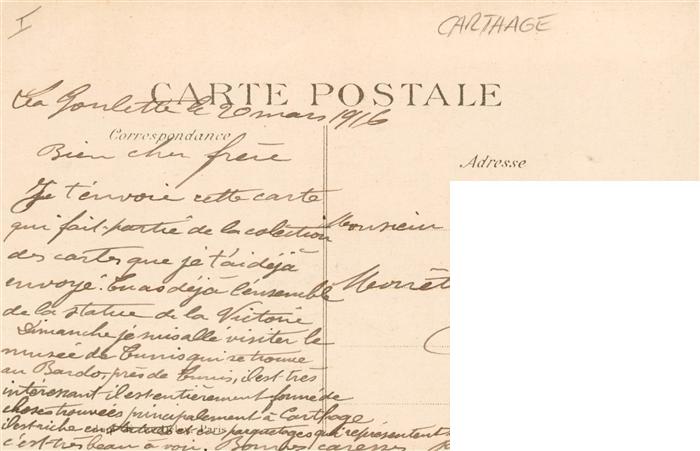 I
CARTHAGE
CARTE POSTALE
La Goulette le 20 mars 1916
Correspondance
Adresse
Bien cher frère
Je t'envoie cette carte
qui fait partie de la colection
Monsieur
des cartes que je t'ai déjà
envoyé. Tu as déjà l'ensemble
de la statue de la Victoire
Dimanche je suis allé visiter le
musée de Tunis qui se trouve
au Bardo, près de Tunis, il est très
intéressant il est entièrement formé de
choses trouvées principalement à Carthage
il est riche en statues et en parquetages qui représentent
c'est très beau à voir. Bonnes caresses